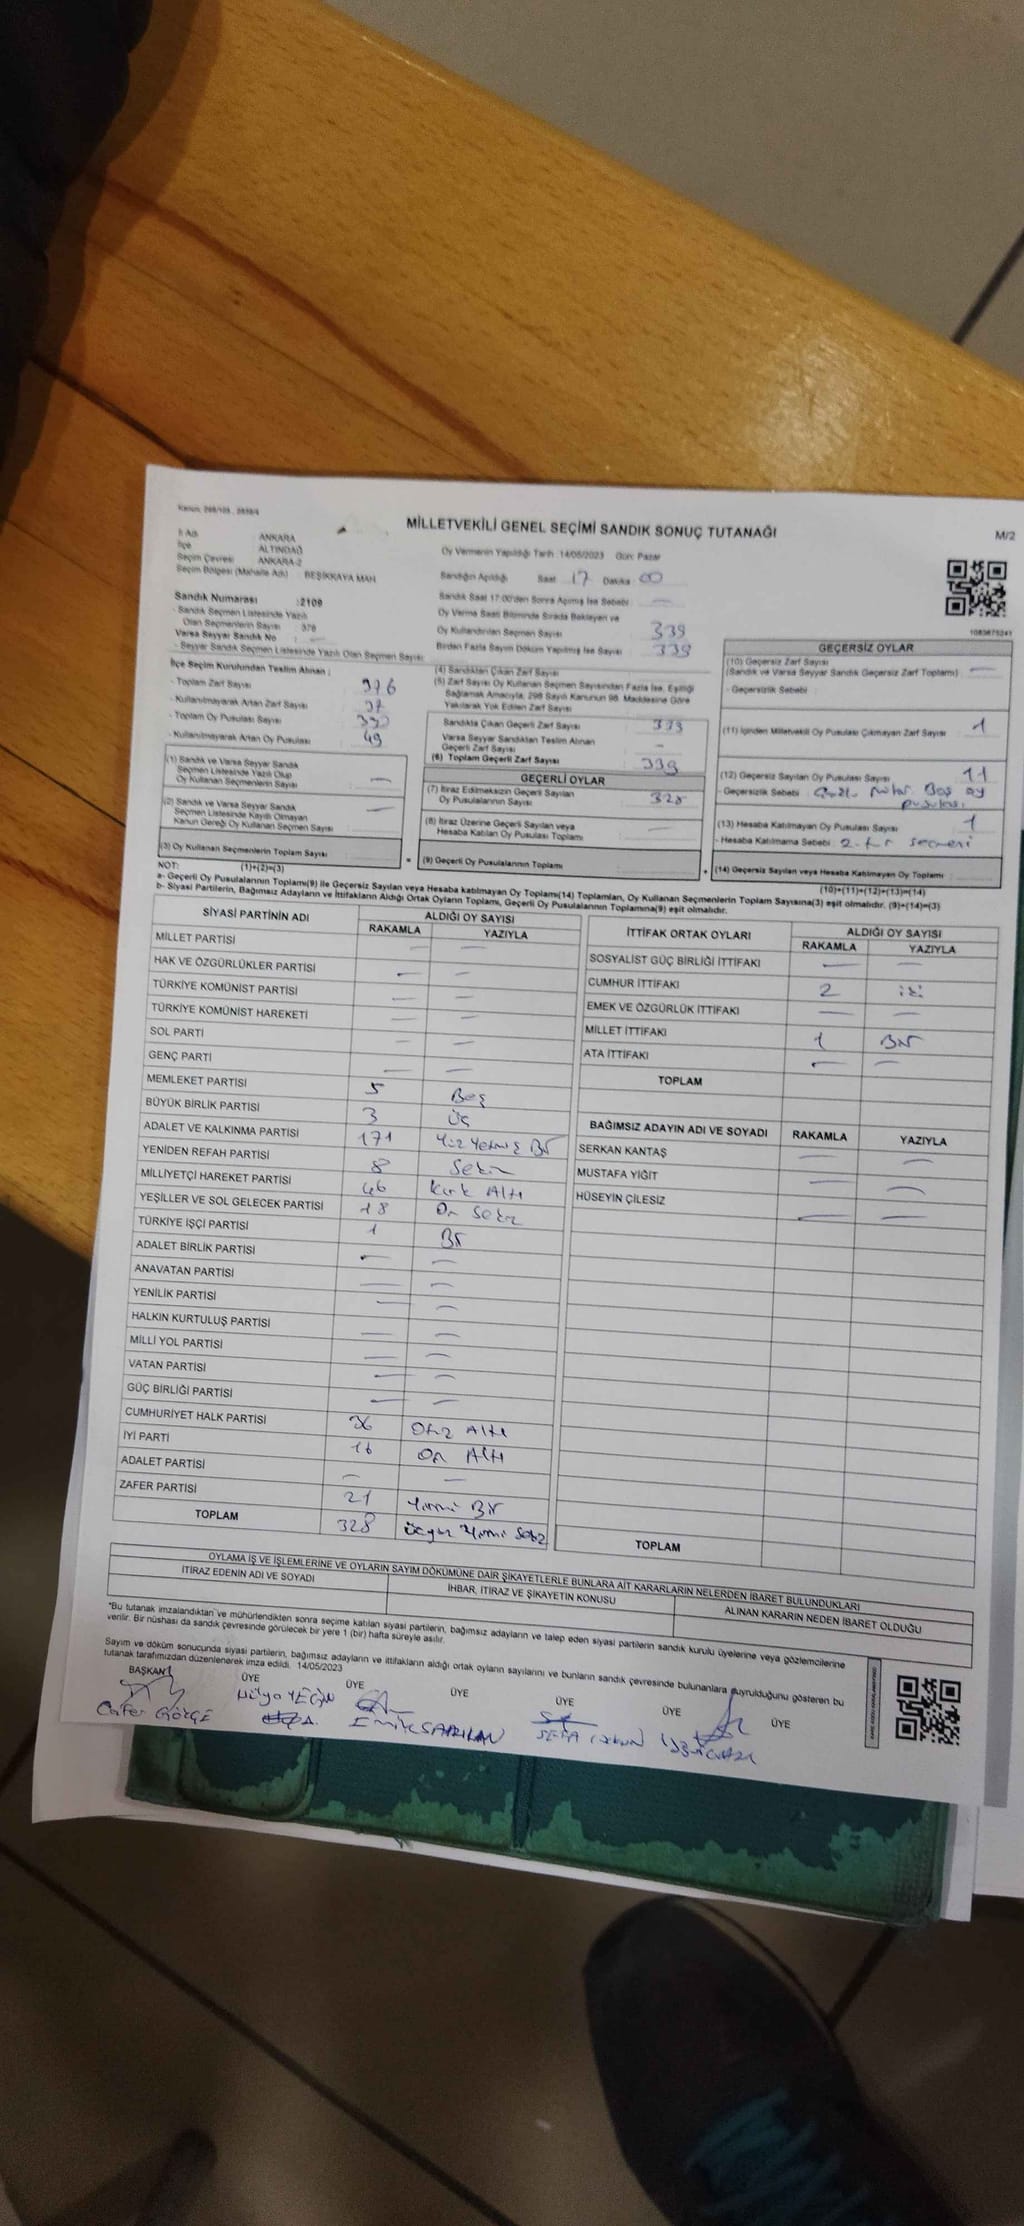 Kanun: 298/105 , 2839/4
MİLLETVEKİLİ GENEL SEÇİMİ SANDIK SONUÇ TUTANAĞI
M/2
İl Adı : ANKARA
İlçe : ALTINDAĞ
Seçim Çevresi : ANKARA-2
Seçim Bölgesi (Mahalle Adı) : BEŞİKKAYA MAH
Oy Vermenin Yapıldığı Tarih : 14/05/2023 Gün: Pazar
Sandığın Açıldığı Saat 17 Dakika 00
Sandık Saat 17:00'den Sonra Açılmış İse Sebebi : —
Oy Verme Saati Bitiminde Sırada Bekleyen ve
Oy Kullandırılan Seçmen Sayısı : 339
Birden Fazla Sayım Döküm Yapılmış İse Sayısı : 339
Sandık Numarası : 2109
- Sandık Seçmen Listesinde Yazılı
Olan Seçmenlerin Sayısı : 376
Varsa Seyyar Sandık No : —
- Seyyar Sandık Seçmen Listesinde Yazılı Olan Seçmen Sayısı:
1083675241
İlçe Seçim Kurulundan Teslim Alınan ;
- Toplam Zarf Sayısı : 376
- Kullanılmayarak Artan Zarf Sayısı : 37
- Toplam Oy Pusulası Sayısı
- Kullanılmayarak Artan Oy Pusulası : 49
(1) Sandık ve Varsa Seyyar Sandık
Seçmen Listesinde Yazılı Olup
Oy Kullanan Seçmen Sayısı : —
(2) Sandık ve Varsa Seyyar Sandık
Seçmen Listesinde Kayıtlı Olmayan
Kanun Gereği Oy Kullanan Seçmen Sayısı : —
(3) Oy Kullanan Seçmenlerin Toplam Sayısı
(1)+(2)=(3)
(4) Sandıktan Çıkan Zarf Sayısı
(5) Zarf Sayısı Oy Kullanan Seçmen Sayısından Fazla İse, Eşitliği
Sağlamak Amacıyla, 298 Sayılı Kanunun 98. Maddesine Göre
Yakılarak Yok Edilen Zarf Sayısı
Sandıkta Çıkan Geçerli Zarf Sayısı : 339
Varsa Seyyar Sandıktan Teslim Alınan
Geçerli Zarf Sayısı : –
(6) Toplam Geçerli Zarf Sayısı : 339
GEÇERLİ OYLAR
(7) İtiraz Edilmeksizin Geçerli Sayılan
Oy Pusulalarının Sayısı : 328
(8) İtiraz Üzerine Geçerli Sayılan veya
Hesaba Katılan Oy Pusulası Toplamı : —
(9) Geçerli Oy Pusulalarının Toplamı :
GEÇERSİZ OYLAR
(10) Geçersiz Zarf Sayısı
(Sandık ve Varsa Seyyar Sandık Geçersiz Zarf Toplamı) : —
- Geçersizlik Sebebi :
(11) İçinden Milletvekili Oy Pusulası Çıkmayan Zarf Sayısı : 1
(12) Geçersiz Sayılan Oy Pusulası Sayısı : 11
- Geçersizlik Sebebi : Boş oy
pusulası
(13) Hesaba Katılmayan Oy Pusulası Sayısı : 1
- Hesaba Katılmama Sebebi : 2. tur seçmeni
(14) Geçersiz Sayılan veya Hesaba Katılmayan Oy Toplamı :
(10)+(11)+(12)+(13)=(14)
NOT:
a- Geçerli Oy Pusulalarının Toplamı(9) ile Geçersiz Sayılan veya Hesaba katılmayan Oy Toplamı(14) Toplamları, Oy Kullanan Seçmenlerin Toplam Sayısına(3) eşit olmalıdır. (9)+(14)=(3)
b- Siyasi Partilerin, Bağımsız Adayların ve İttifakların Aldığı Ortak Oyların Toplamı, Geçerli Oy Pusulalarının Toplamına(9) eşit olmalıdır.
SİYASİ PARTİNİN ADI ALDIĞI OY SAYISI
RAKAMLA YAZIYLA
MİLLET PARTİSİ — —
HAK VE ÖZGÜRLÜKLER PARTİSİ — —
TÜRKİYE KOMÜNİST PARTİSİ — —
TÜRKİYE KOMÜNİST HAREKETİ — —
SOL PARTİ — —
GENÇ PARTİ — —
MEMLEKET PARTİSİ 5 Beş
BÜYÜK BİRLİK PARTİSİ 3 Üç
ADALET VE KALKINMA PARTİSİ 171 Yüz Yetmiş Bir
YENİDEN REFAH PARTİSİ 8 Sekiz
MİLLİYETÇİ HAREKET PARTİSİ 46 Kırk Altı
YEŞİLLER VE SOL GELECEK PARTİSİ 18 On Sekiz
TÜRKİYE İŞÇİ PARTİSİ 1 Bir
ADALET BİRLİK PARTİSİ — —
ANAVATAN PARTİSİ — —
YENİLİK PARTİSİ — —
HALKIN KURTULUŞ PARTİSİ — —
MİLLİ YOL PARTİSİ — —
VATAN PARTİSİ — —
GÜÇ BİRLİĞİ PARTİSİ — —
CUMHURİYET HALK PARTİSİ 36 Otuz Altı
İYİ PARTİ 16 On Altı
ADALET PARTİSİ — —
ZAFER PARTİSİ 21 Yirmi Bir
TOPLAM 328 Üçyüz Yirmi Sekiz
İTTİFAK ORTAK OYLARI ALDIĞI OY SAYISI
RAKAMLA YAZIYLA
SOSYALİST GÜÇ BİRLİĞİ İTTİFAKI — —
CUMHUR İTTİFAKI 2 iki
EMEK VE ÖZGÜRLÜK İTTİFAKI — —
MİLLET İTTİFAKI 1 Bir
ATA İTTİFAKI — —
TOPLAM
BAĞIMSIZ ADAYIN ADI VE SOYADI RAKAMLA YAZIYLA
SERKAN KANTAŞ — —
MUSTAFA YİĞİT — —
HÜSEYİN ÇİLESİZ — —
TOPLAM
OYLAMA İŞ VE İŞLEMLERİNE VE OYLARIN SAYIM DÖKÜMÜNE DAİR ŞİKAYETLERLE BUNLARA AİT KARARLARIN NELERDEN İBARET BULUNDUKLARI
İTİRAZ EDENİN ADI VE SOYADI İHBAR, İTİRAZ VE ŞİKAYETİN KONUSU ALINAN KARARIN NEDEN İBARET OLDUĞU
"Bu tutanak imzalandıktan ve mühürlendikten sonra seçime katılan siyasi partilerin, bağımsız adayların ve talep eden siyasi partilerin sandık kurulu üyelerine veya gözlemcilerine
verilir. Bir nüshası da sandık çevresinde görülecek bir yere 1 (bir) hafta süreyle asılır.
Sayım ve döküm sonucunda siyasi partilerin, bağımsız adayların ve ittifakların aldığı ortak oyların sayılarını ve bunların sandık çevresinde bulunanlara duyrulduğunu gösteren bu
tutanak tarafımızdan düzenlenerek imza edildi. 14/05/2023
BAŞKAN ÜYE ÜYE ÜYE ÜYE ÜYE ÜYE
Cafer GÖKÇE